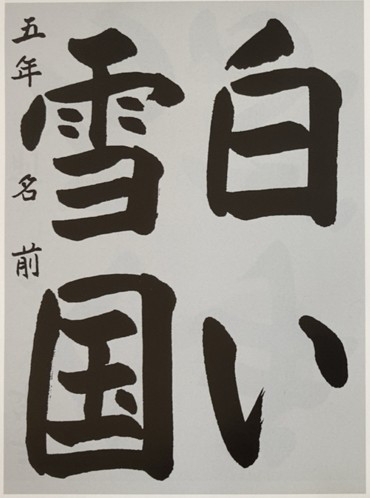 白い
雪国
五年 名前